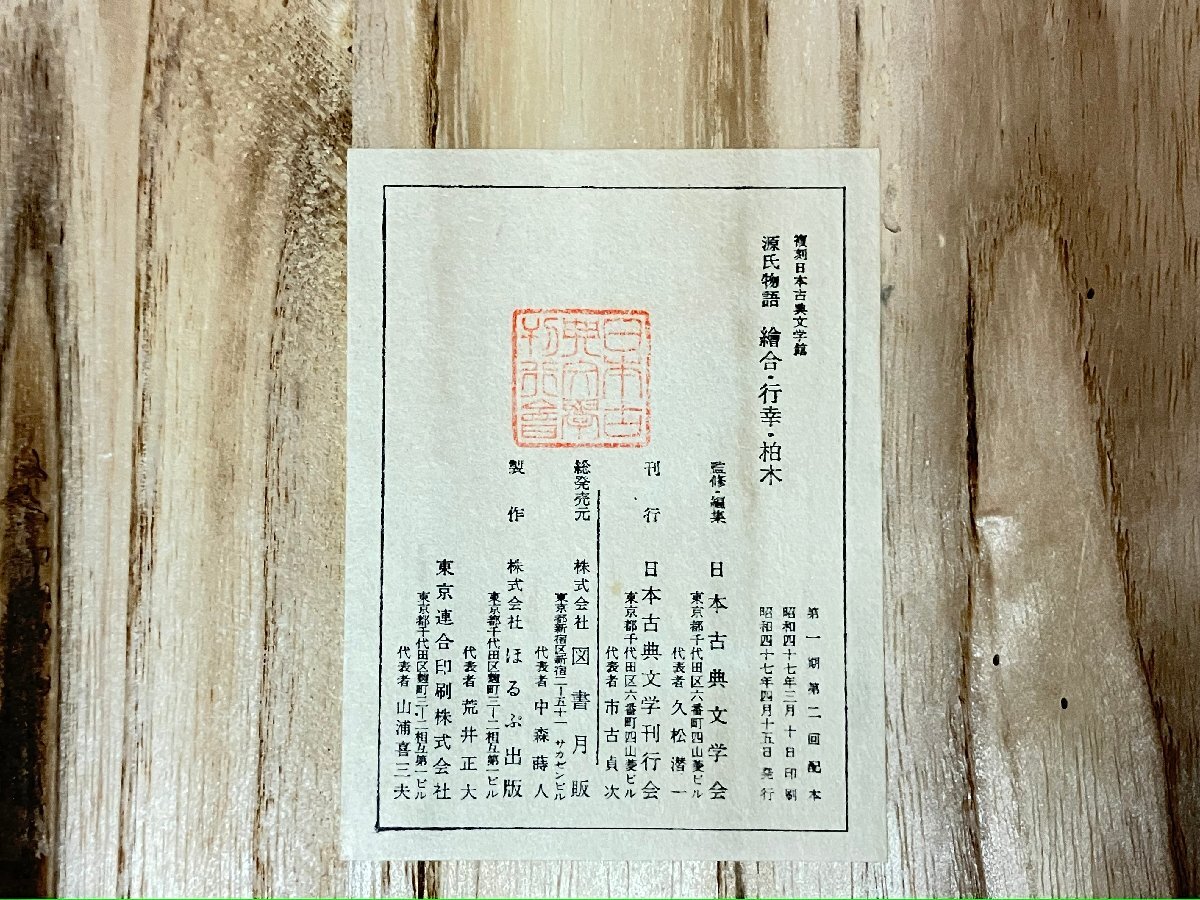 複刻日本古典文学館
源氏物語 繪合・行幸・柏木
第一期第二回配本
昭和四十七年三月十日印刷
昭和四十七年四月十五日発行
監修・編集 日本古典文学会
東京都千代田区六番町四山菱ビル
代表者 久松潜一
刊行 日本古典文学刊行会
東京都千代田区六番町四山菱ビル
代表者 市古貞次
総発売元 株式会社 図書月販
東京都新宿区新宿二ー五十一 サカゼンビル
代表者 中森蒔人
製作 株式会社 ほるぷ出版
東京都千代田区麹町三ー二相互第一ビル
代表者 荒井正大
東京連合印刷株式会社
東京都千代田区麹町三ー二相互第一ビル
代表者 山浦喜三夫
日本古
典文學
刊行會